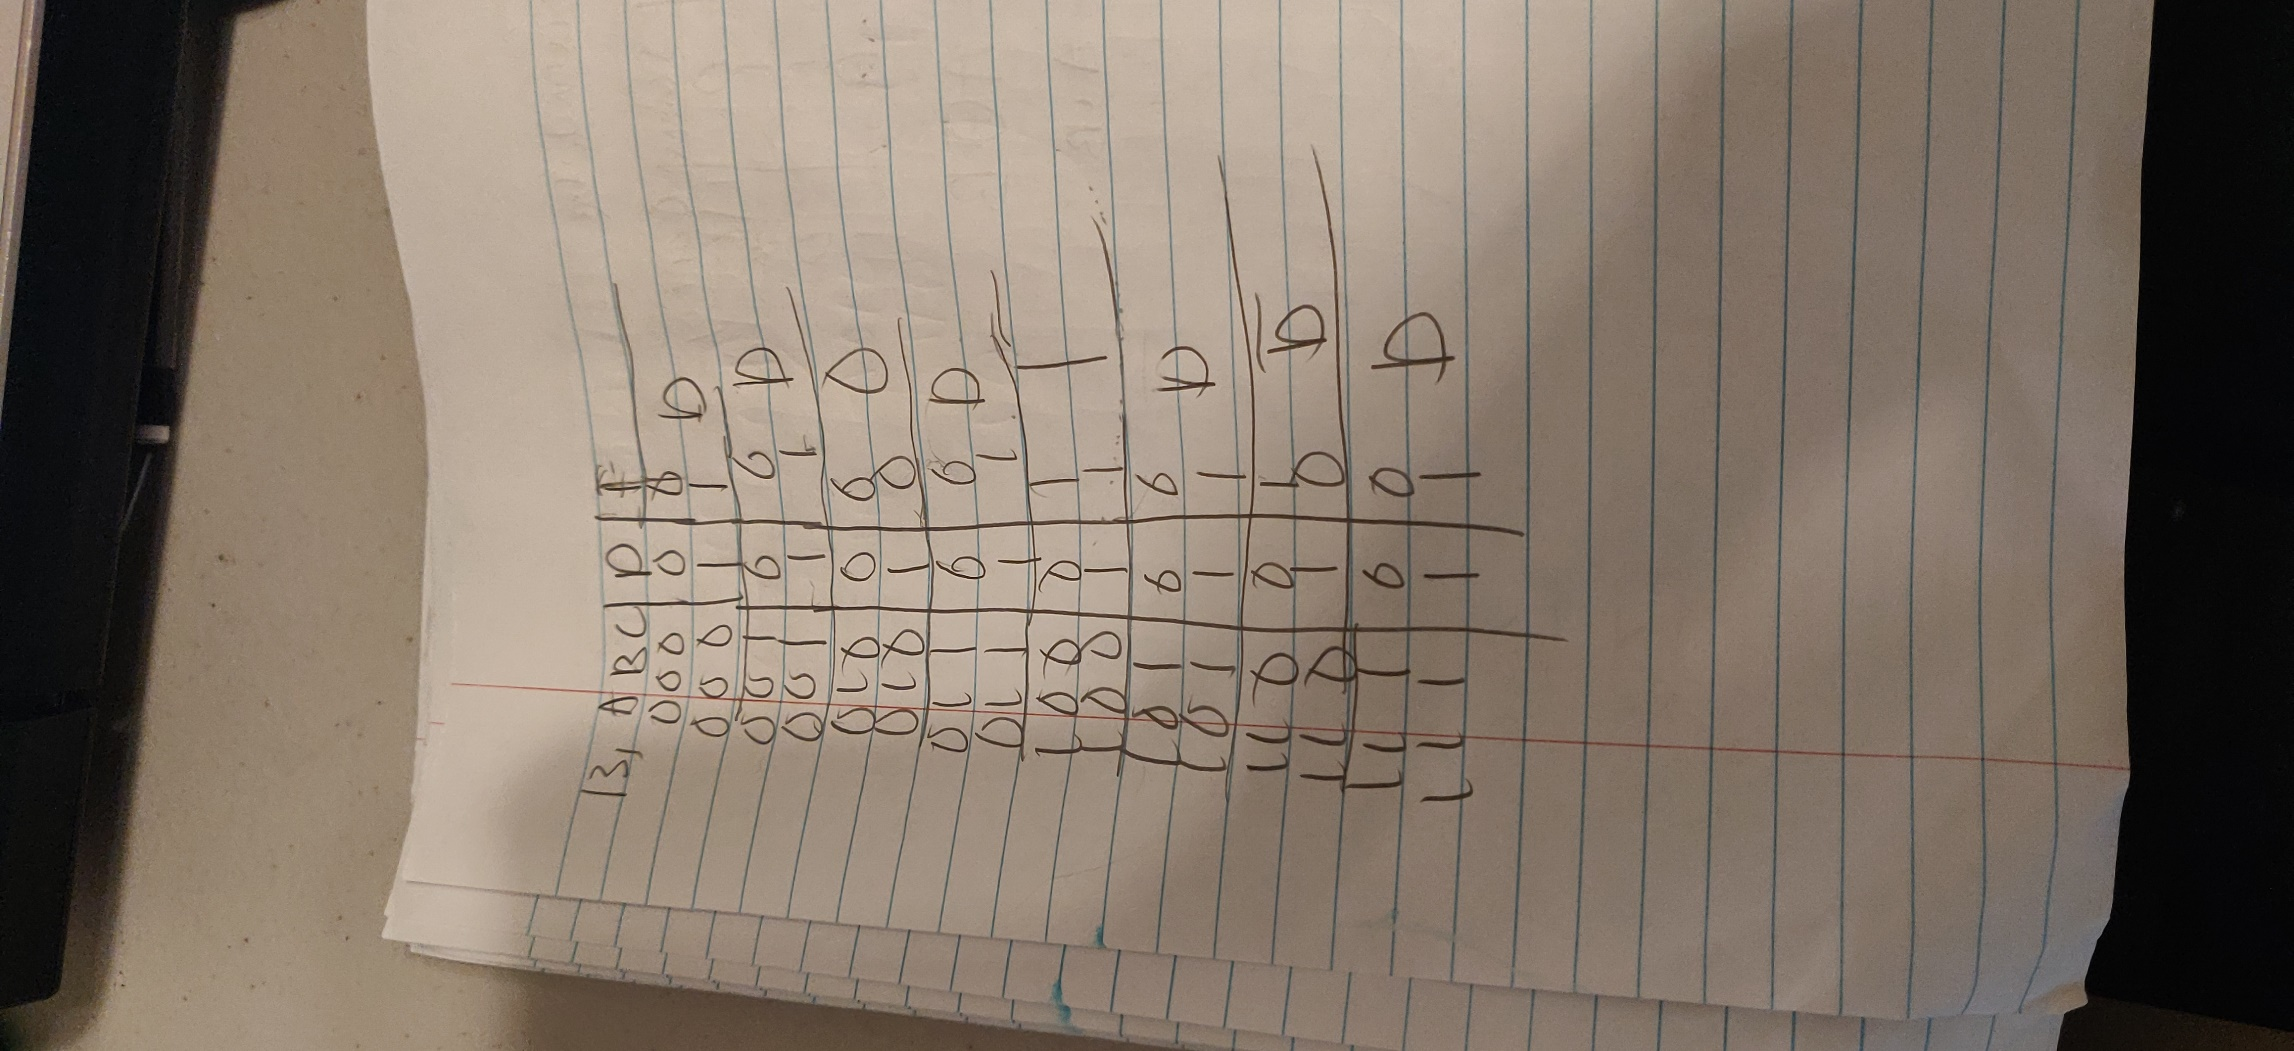 B, A B C | D | F
0 0 0 | 0 | 0 D
0 0 0 | 1 | 1
0 0 1 | 0 | 0 D
0 0 1 | 1 | 1
0 1 0 | 0 | 0 0
0 1 0 | 1 | 0
0 1 1 | 0 | 0 D
0 1 1 | 1 | 1
1 0 0 | 0 | 1 1
1 0 0 | 1 | 1
1 0 1 | 0 | 0 D
1 0 1 | 1 | 1
1 1 0 | 0 | 1 D̅
1 1 0 | 1 | 0
1 1 1 | 0 | 0 D
1 1 1 | 1 | 1